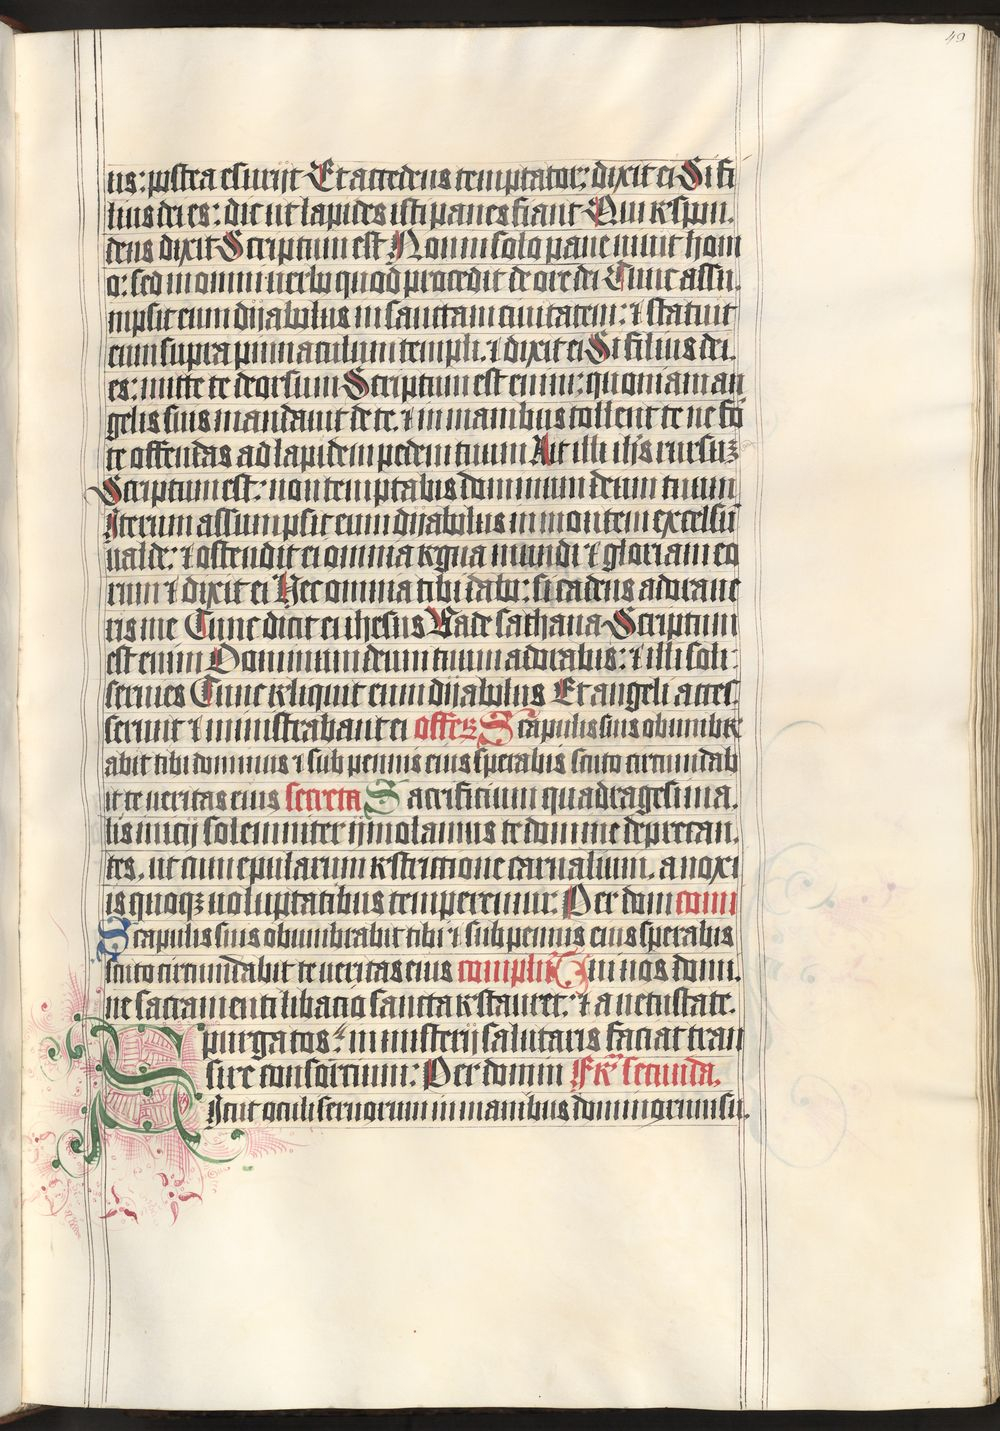 49
us: postea esurijt Et accedens temptator: dixit ei Si fi
lius dei es: dic ut lapides isti panes fiant Qui respon.
dens dixit Scriptum est Non in solo pane uiuit hom
o: sed in omni uerbo quod procedit de ore dei Tunc assu.
mpsit eum dijabolus in sanctam ciuitatem: ⁊ statuit
eum supra pinnaculum templi. ⁊ dixit ei Si filius dei.
es: mitte te deorsum Scriptum est enim: quoniam an
gelis suis mandauit de te. ⁊ in manibus tollent te ne for
te offendas ad lapidem pedem tuum Ait illi ihs rursuz
Scriptum est: non temptabis dominum deum tuum
Iterum assumpsit eum dijabolus in montem excelsū
ualde: ⁊ ostendit ei omnia regna mundi ⁊ gloriam eo
rum ⁊ dixit ei Hec omnia tibi dabo: si cadens adoraue
ris me Tunc dicit ei ihesus Uade sathana Scriptum
est enim Dominum deum tuum adorabis: ⁊ illi soli
seruies Tunc reliquit eum dijabolus Et angeli acces
serunt ⁊ ministrabant ei offerz Scapulis suis obumbr
abit tibi dominus ⁊ sub pennis eius sperabis scuto circumdab
it te ueritas eius secreta Sacrificium quadragesima.
lis inicij solemniter ijmolamus te domine deprecan.
tes. ut cum epularum restrictione carnalium. a noxi
is quoqz uoluptatibus temperemur: Per dom comu
Scapulis suis obumbrabit tibi ⁊ sub pennis eius sperabis
scuto circumdabit te ueritas eius complen Tui nos domi.
ne sacramenti libatio sancta restauret: ⁊ a uetustate.
purgatos: in misterij salutaris faciat tran
sire consortium: Per domin Fer secunda.
Sicut oculi seruorum in manibus dominorum su.